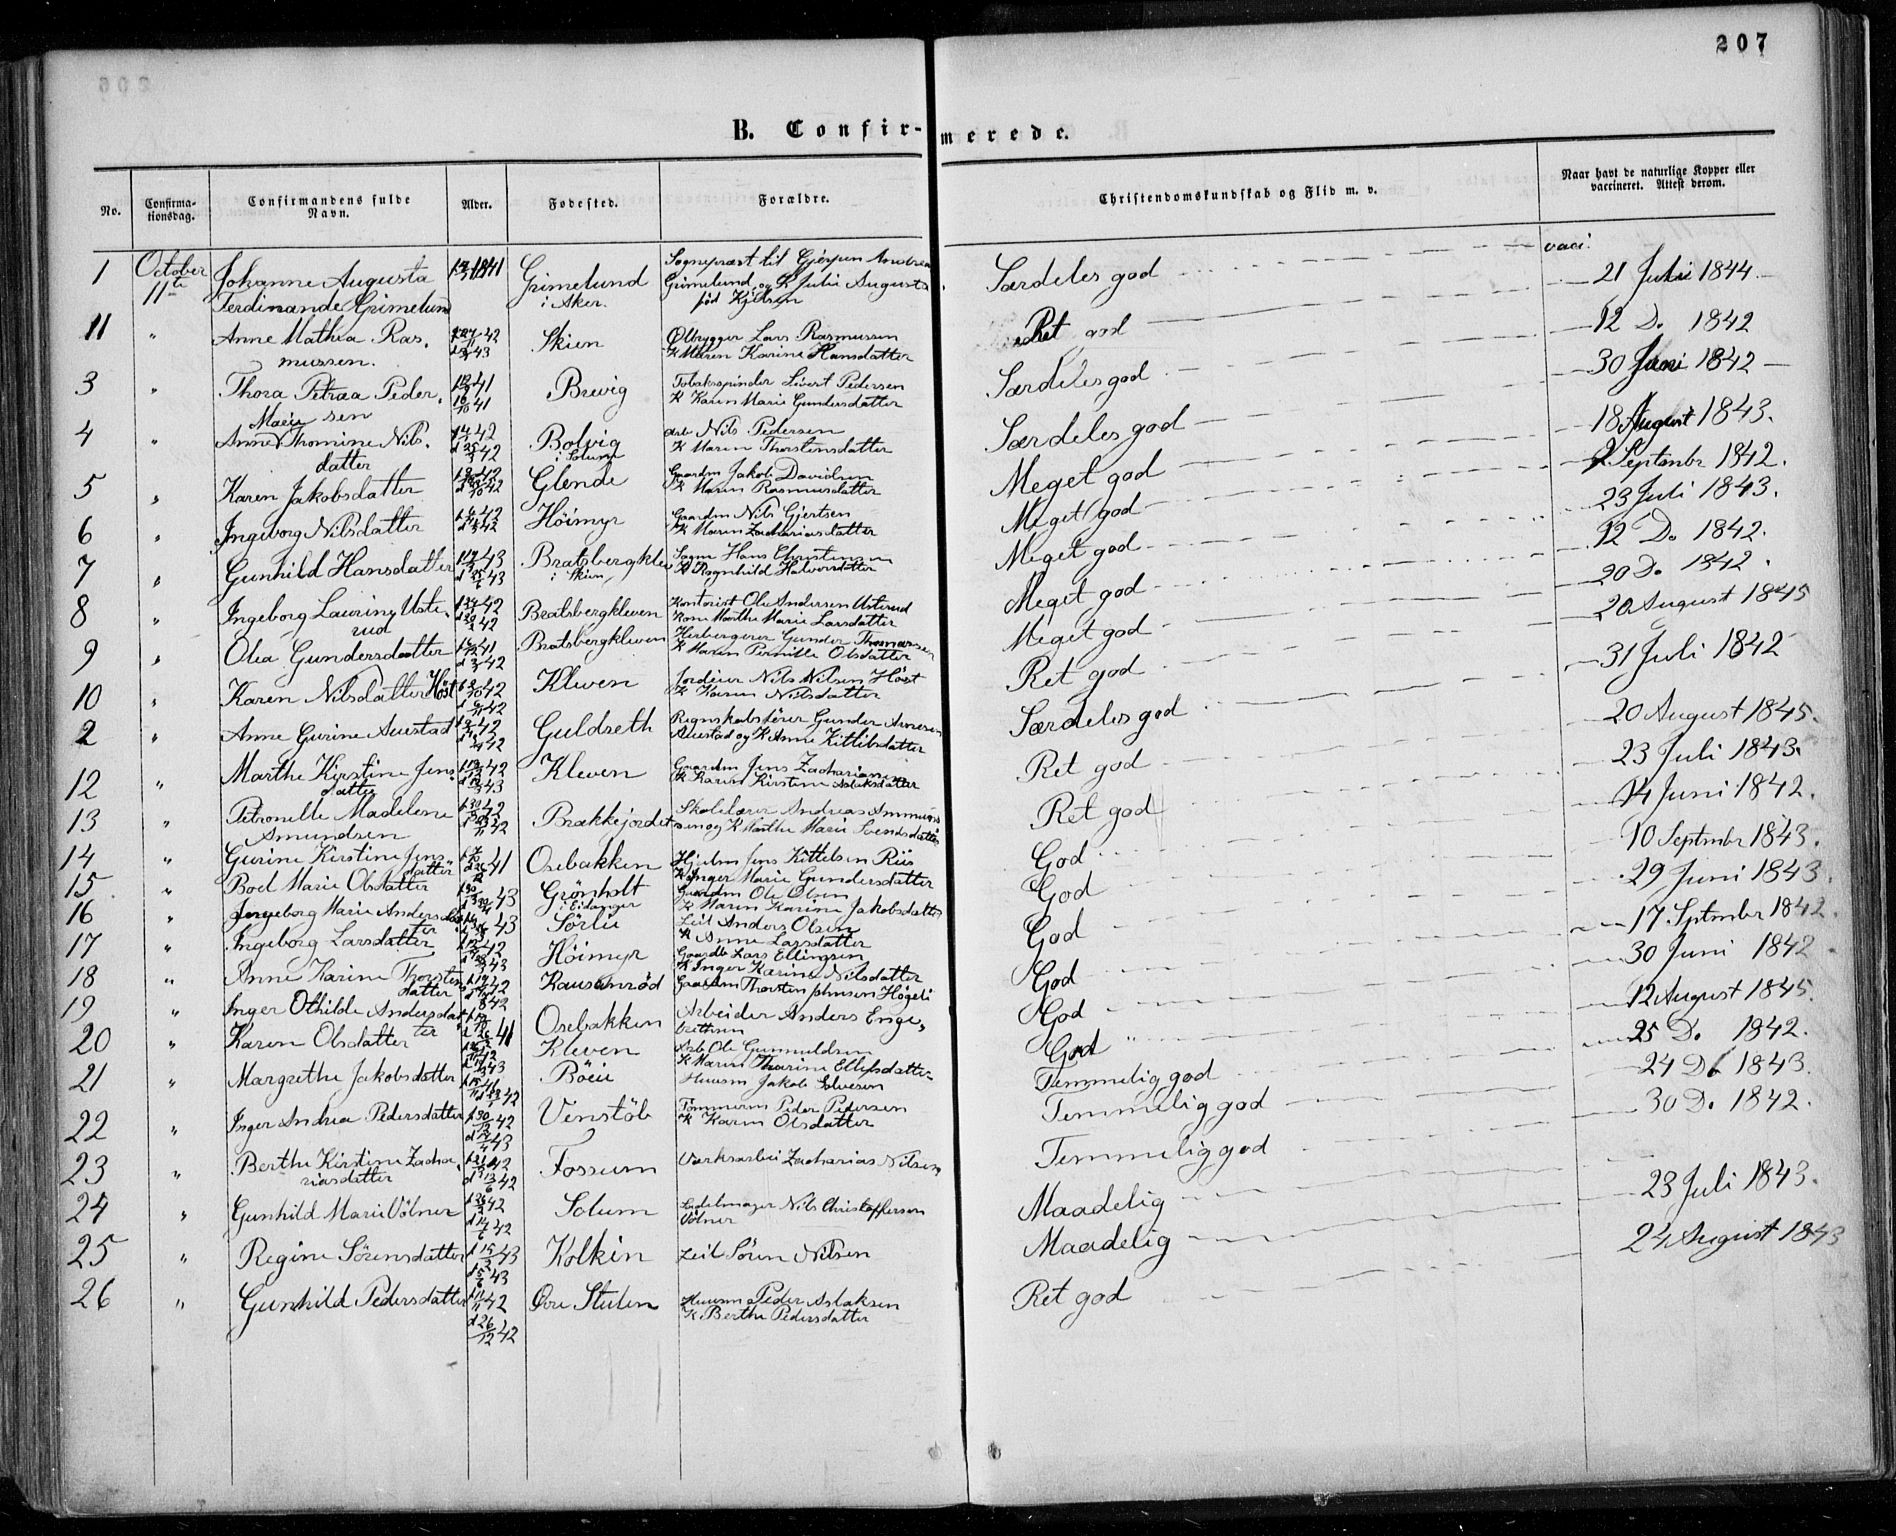 207
B. Confirmerede.
No. Confirmationsdag. Confirmandens fulde Navn. Alder. Fødested. Forældre. Christendomskundskab og Flid m. v. Naar havt de naturlige Kopper eller vaccineret. Attest derom.
1 October 11te Johanne Augusta Ferdinande Grimelund 1841 Grimelund i Aker. Sognepræst til Gjerpen Andreas Grimelund og K Julie Augusta fød Kjelsen Særdeles god vacc. 21 Juli 1844
11 " Anne Mathea Rasmussen. 42 43 Skien Ølbrygger Lars Rasmussen K Maren Karine Hansdatter Ret god 12 D. 1842
3 " Thora Petrea Pedersen 41 16/10 41 Brevig Tobakspinder Sivert Pedersen K Karen Marie Gundersdatter Særdeles god 30 Juni 1842
4 " Anne Marie Thomine Nilsdatter 42 42 Bolvig i Solum Arb Nils Pedersen K Maren Thorstensdatter Særdeles god 18 August 1843.
5 " Karen Jakobsdatter 42 42 Glende Gaardm Jakob Davidsen K Maren Rasmusdatter Meget god 2 Septembr 1842.
6 " Ingeborg Nilsdatter 42 42 Höimyr Gaardm Nils Gjertsen K Maren Zachariasdatter Meget god 23 Juli 1843.
7 " Gunhild Hansdatter 43 43 Bratsbergkleven i Skien Hans Christensen K Ragnhild Halvorsdatter Meget god 12 D. 1842.
8 " Ingeborg Laurine Usterud 42 42 Bratsbergkleven Kontorist Ole Andersen Usterud Kone Marthe Marie Larsdatter Meget god 20 D. 1842.
9 " Olea Gundersdatter 41 42 Bratsbergkleven Herbergerer Gunder Thomassen K Maren Pernille Olsdatter Meget god 20 August 1845
10 " Karen Nilsdatter Höst 42 42 Kleven Jordeier Nils Nilsen Höst K Karen Nilsdatter Ret god 31 Juli 1842
2 " Anne Gurine Auestad 42 42 Guldseth Regnskabsfører Gunder Arnesen Auestad og K Anne Kittilsdatter Særdeles god 20 August 1845.
12 " Marthe Kirstine Jensdatter 42 43 Kleven Gaardm Jens Zachariasen K Karen Kirstine Aslaksdatter Ret god 23 Juli 1843.
13 " Petronelle Madelene Amundsen 42 42 Brækkejordet Skolelærer Andreas Ammundsen og K Marthe Marie Svendsdatter Ret god 14 Juni 1842.
14 " Gurine Kirstine Jensdatter 41 Osebakken Hjulm Jens Kittelsen Riis K Inger Marie Gundersdatter God 10 Septembr 1843.
15 " Boel Marie Olsdatter 43 Grönholt i Eidanger Gaardm Ole Olsen K Maren Karine Jakobsdatter God 29 Juni 1843.
16 " Ingeborg Marie Andersdatter 43 Sörlie Leil Anders Olsen K Anne Larsdatter God 17. Septmber 1842.
17 " Ingeborg Larsdatter 42 43 Höimyr Gaardb Lars Ellingsen K Inger Karine Nilsdatter God 30 Juni 1842
18 " Anne Karine Thorstensdatter 42 42 Rausanröd Gaardm Thorsten Johnsen Högeli God 12 August 1845.
19 " Inger Othilde Andersdatter 41 Osebakken Arbeider Anders Engebrethsen God 25 D. 1842.
20 " Karen Olsdatter 42 43 Kleven Arb Ole Gunnuldsen K Maren Thorine Ellefsdatter God 24 D. 1843.
21 " Margrethe Jakobsdatter 41 42 Böeie Huusm Jakob Temmelig god 30 D. 1842.
22 " Inger Andrea Pedersdatter 42 43 Venstöb Tømmerm Peder Pedersen K Karen Olsdatter Temmelig god
23 " Berthe Kirstine Zachariasdatter 42 42 Fossum Værksarbei Zacharias Nilsen Temmelig god
24 " Gunhild Marie Völner 42 42 Solum Sadelmager Nils Christoffersen Völner Maadelig 23 Juli 1843.
25 " Regine Sörensdatter 43 43 Kolkin Leil Sören Nilsen Maadelig 24 August 1843
26 " Gunhild Pedersdatter 42 26/12 42 Övre Stulen Huusm Peder Aslaksen K Berthe Pedersdatter Ret god